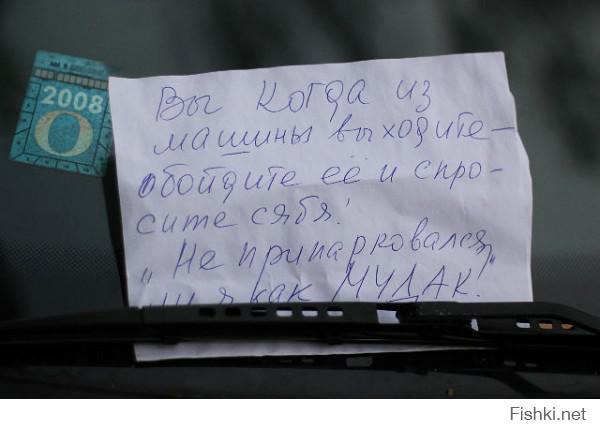 2008
О
Вы когда из
машины выходите —
обойдите её и спро-
сите сябя!
„Не припарковался
ли я как МУДАК!"
Fishki.net